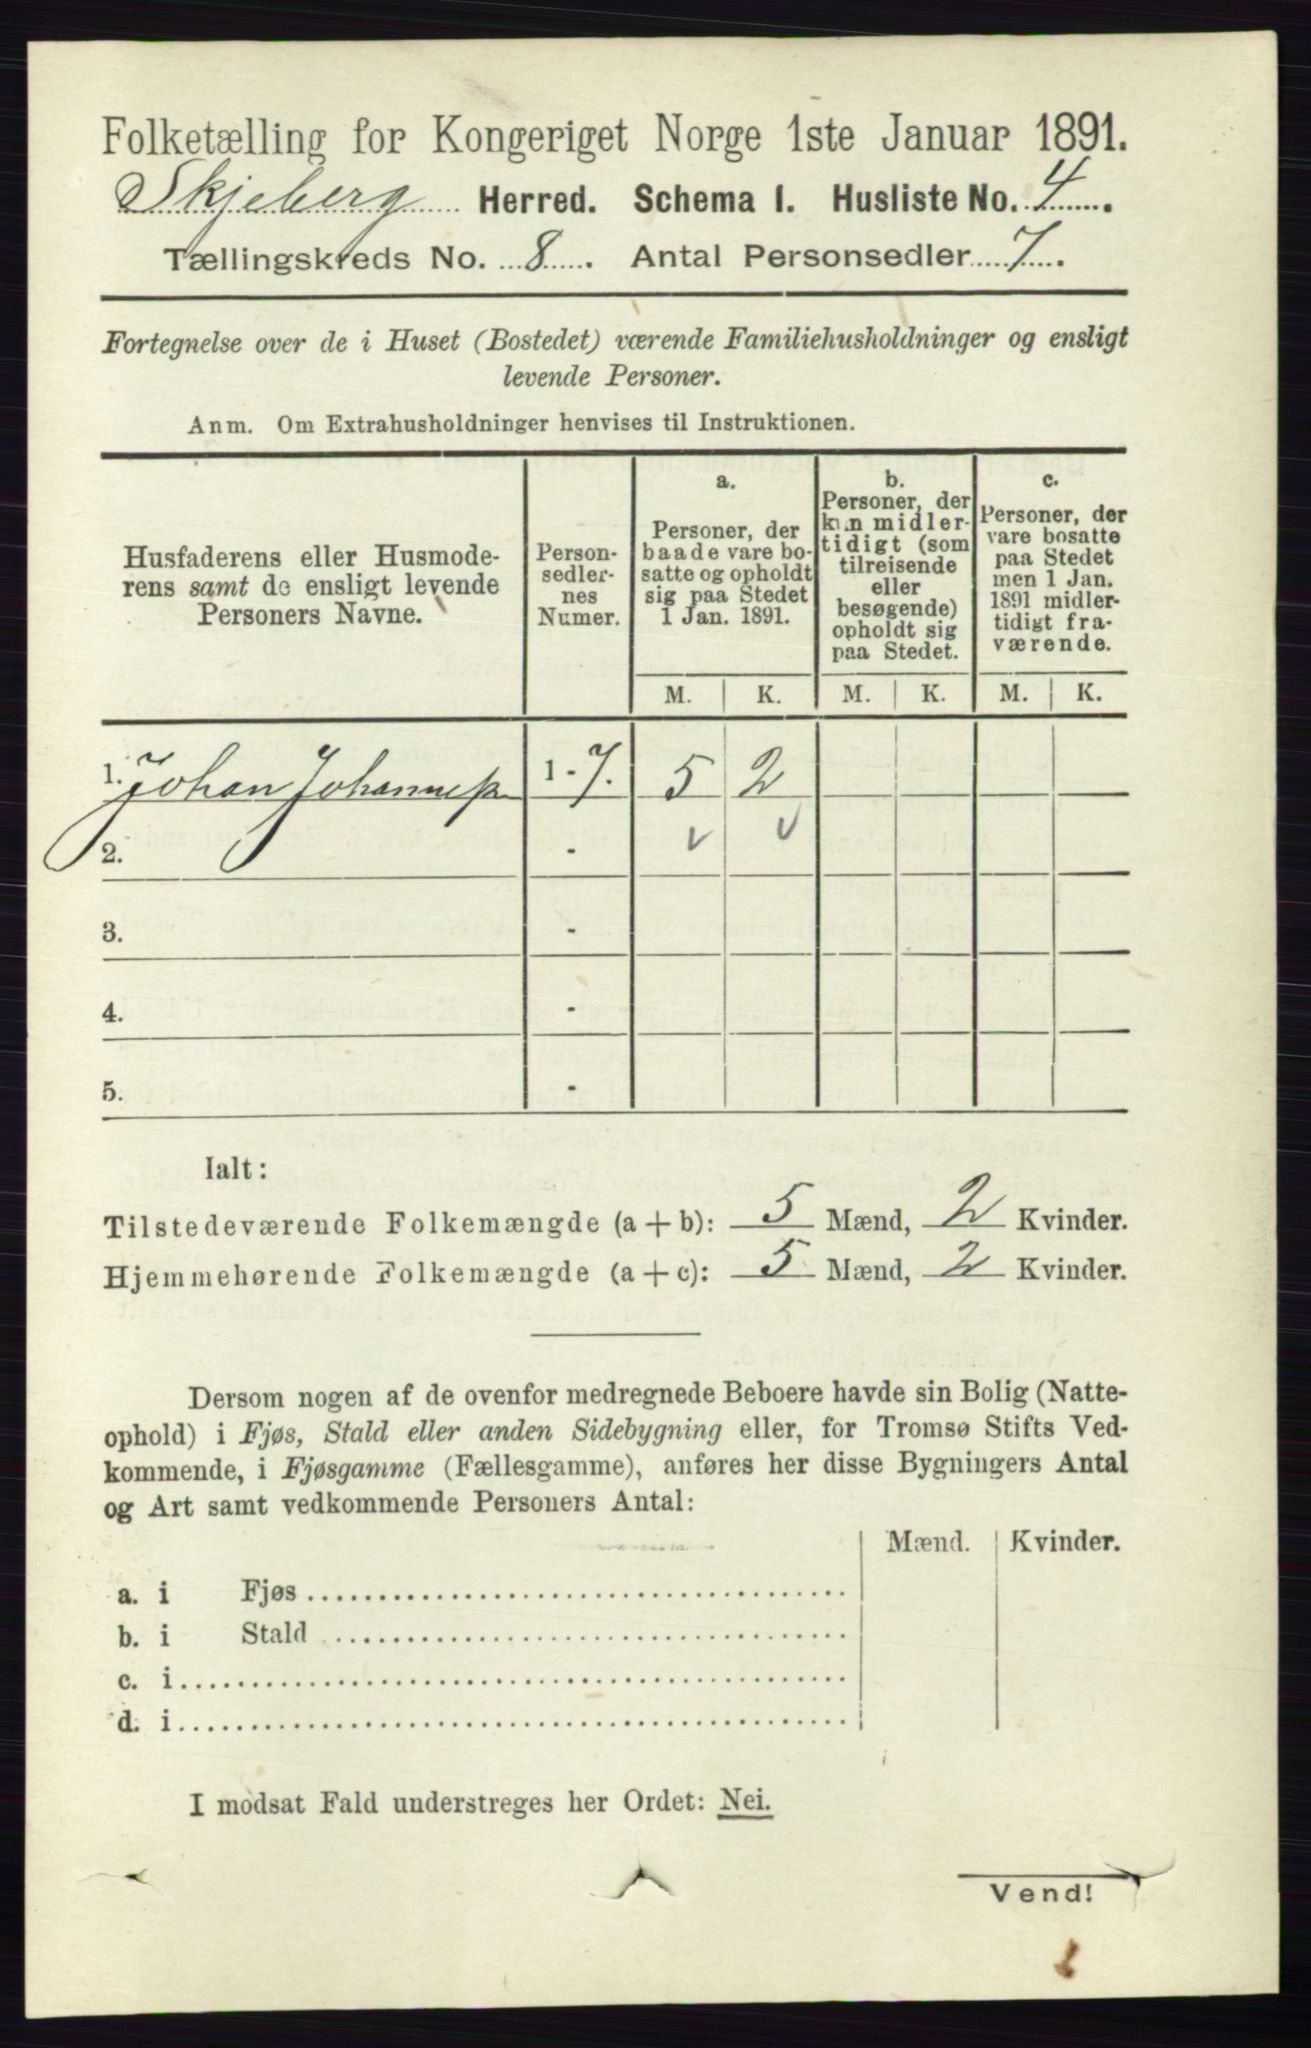 Folketælling for Kongeriget Norge 1ste Januar 1891.
Skjeberg Herred. Schema I. Husliste No. 4.
Tællingskreds No. 8. Antal Personsedler 7.
Fortegnelse over de i Huset (Bostedet) værende Familiehusholdninger og ensligt
levende Personer.
Anm. Om Extrahusholdninger henvises til Instruktionen.
Husfaderens eller Husmode-
rens samt de ensligt levende
Personers Navne.
Person-
sedler-
nes
Numer.
a.
Personer, der
baade vare bo-
satte og opholdt
sig paa Stedet
1 Jan. 1891.
b.
Personer, der
kun midler-
tidigt (som
tilreisende
eller
besøgende)
opholdt sig
paa Stedet.
c.
Personer, der
vare bosatte
paa Stedet
men 1 Jan.
1891 midler-
tidigt fra-
værende.
M. K. M. K. M. K.
1. Johan Johannes 1 - 7. 5 2
2. - v v
3. -
4. -
5. -
Ialt:
Tilstedeværende Folkemængde (a + b): 5 Mænd, 2 Kvinder.
Hjemmehørende Folkemængde (a + c): 5 Mænd, 2 Kvinder.
Dersom nogen af de ovenfor medregnede Beboere havde sin Bolig (Natte-
ophold) i Fjøs, Stald eller anden Sidebygning eller, for Tromsø Stifts Ved-
kommende, i Fjøsgamme (Fællesgamme), anføres her disse Bygningers Antal
og Art samt vedkommende Personers Antal:
Mænd. Kvinder.
a. i Fjøs
b. i Stald
c. i
d. i
I modsat Fald understreges her Ordet: Nei.
Vend!